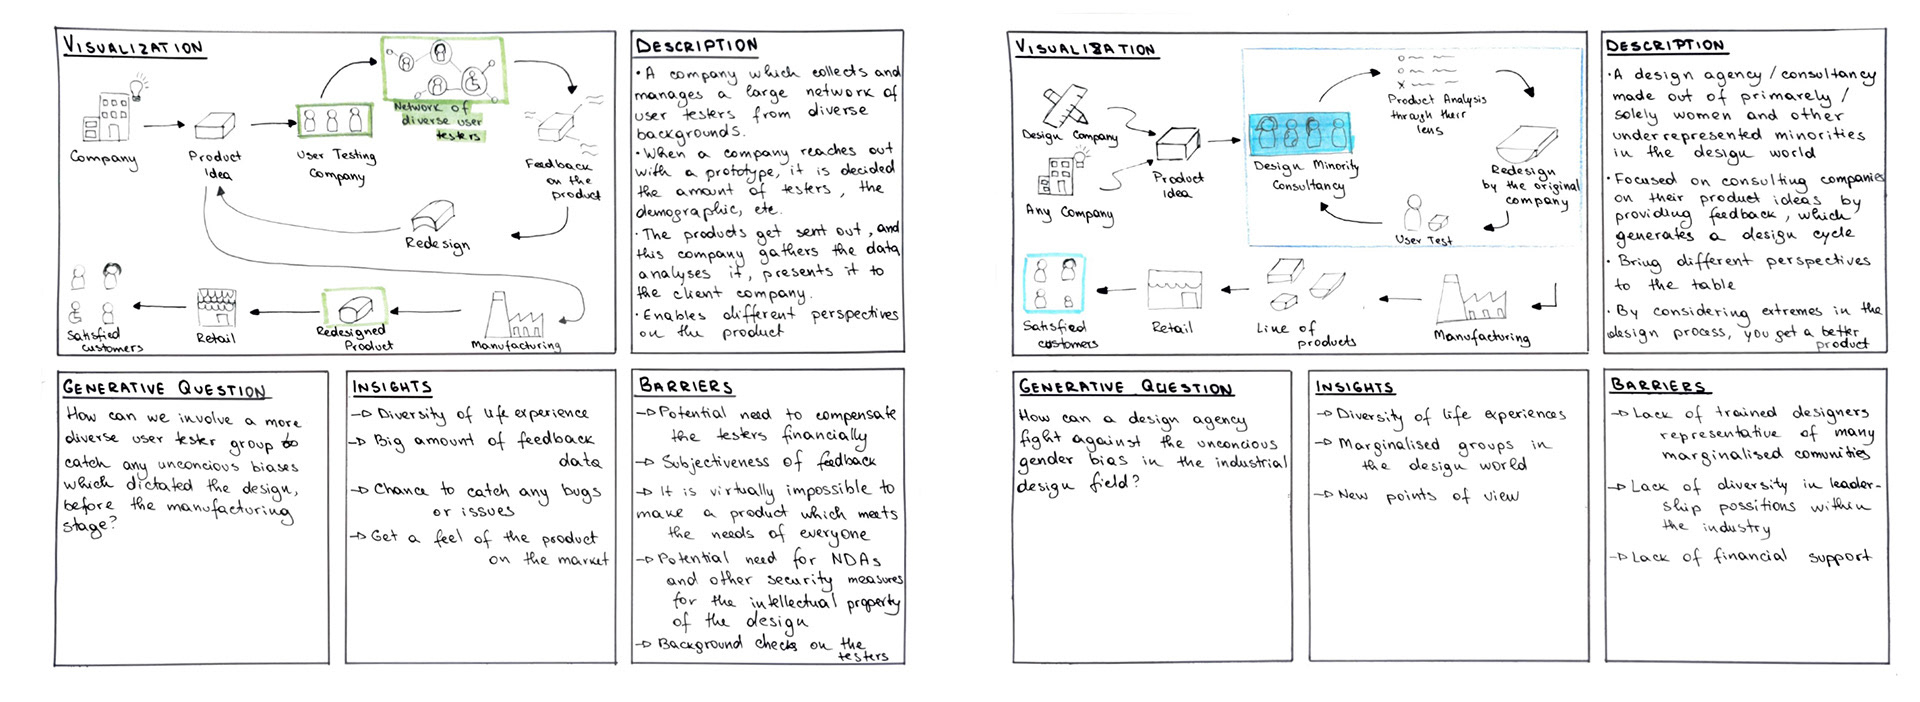 VISUALIZATION
Company
Product
Idea
User Testing
Company
Network of
diverse user
testers
Feedback
on the
product
Redesign
Satisfied
customers
Retail
Redesigned
Product
Manufacturing
DESCRIPTION
• A company which collects and
manages a large network of
user testers from diverse
backgrounds.
• When a company reaches out
with a prototype, it is decided
the amount of testers, the
demographic, etc.
• The products get sent out, and
this company gathers the data
analyses it, presents it to
the client company.
• Enables different perspectives
on the product
GENERATIVE QUESTION
How can we involve a more
diverse user tester group to
catch any unconcious biases
which dictated the design,
before the manufacturing
stage?
INSIGHTS
→ Diversity of life experience
→ Big amount of feedback
data
→ Chance to catch any bugs
or issues
→ Get a feel of the product
on the market
BARRIERS
→ Potential need to compensate
the testers financially
→ Subjectiveness of feedback
→ It is virtually impossible to
make a product which meets
the needs of everyone
→ Potential need for NDAs
and other security measures
for the intellectual property
of the design
→ Background checks on the
testers
VISUALISATION
Design Company
Any Company
Product
Idea
Design Minority
Consultancy
Product Analysis
through their
lens
Redesign
by the original
company
User Test
Satisfied
customers
Retail
Line of
products
Manufacturing
DESCRIPTION
• A design agency / consultancy
made out of primarely /
solely women and other
underrepresented minorities
in the design world
• Focused on consulting companies
on their product ideas by
providing feedback, which
generates a design cycle
• Bring different perspectives
to the table
• By considering extremes in the
design process, you get a better
product
GENERATIVE QUESTION
How can a design agency
fight against the unconcious
gender bias in the industrial
design field?
INSIGHTS
→ Diversity of life experiences
→ Marginalised groups in
the design world
→ New points of view
BARRIERS
→ Lack of trained designers
representative of many
marginalised comunities
→ Lack of diversity in leader-
ship possitions within
the industry
→ Lack of financial support